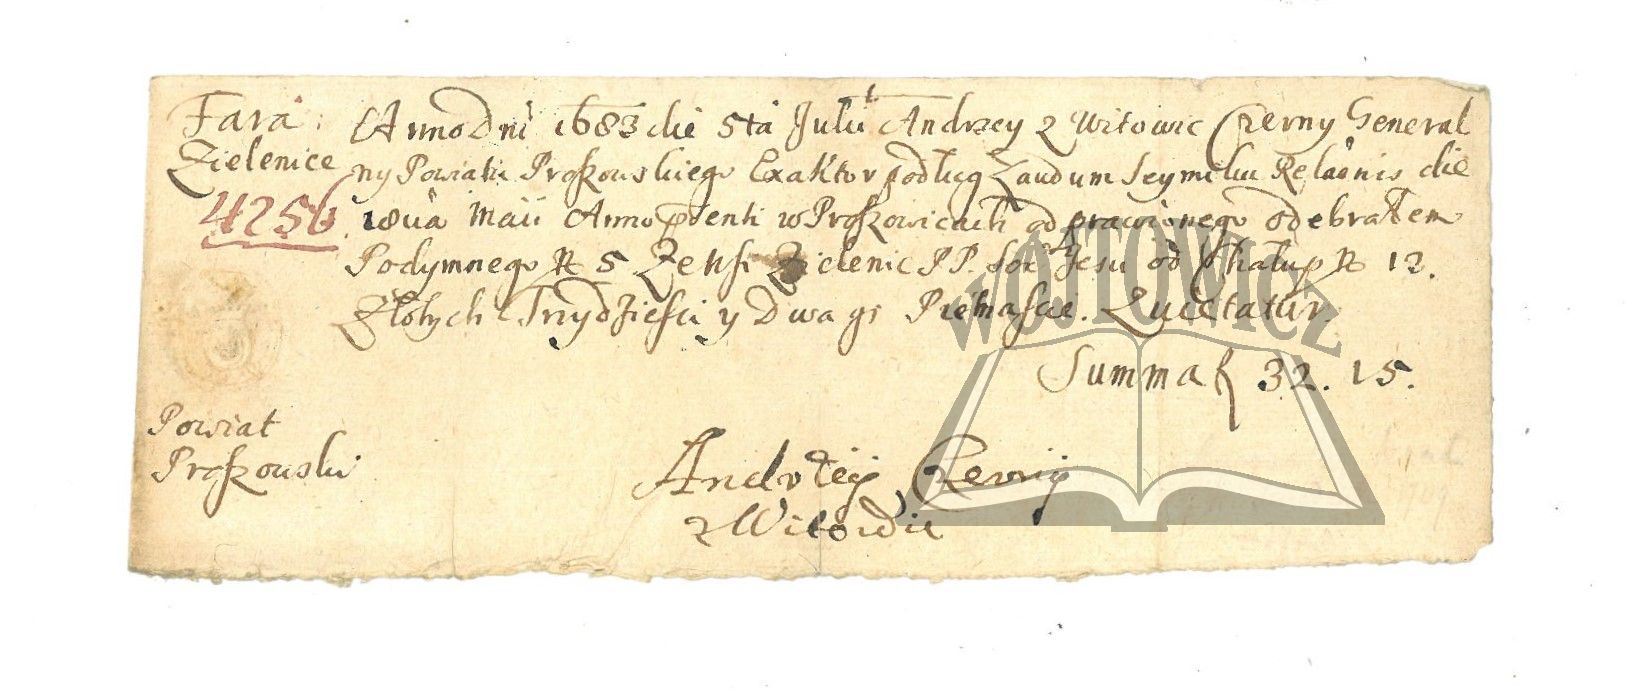 Fara
Zielenice
4256
Anno Dni 1683 die 5ta Julii Andrzey z Witowic Czerny General
ny Powiatu Proszowskiego Exaktor podług Laudum Seymiku Relaōnis die
18va Maii Anno pṡenti w Proszowicach odprawionego odebrałem
Podymnego N 5 Ze Wsi Zielenic PP. Soc Jesu od Chałup N 12.
Złotych Trzydziesci y Dwa gr Pietnascie. Quietatur
Summa f 32. 15.
Powiat
Proszowski
Andrzey Czerny
z Witowic
WÓJTOWICZ